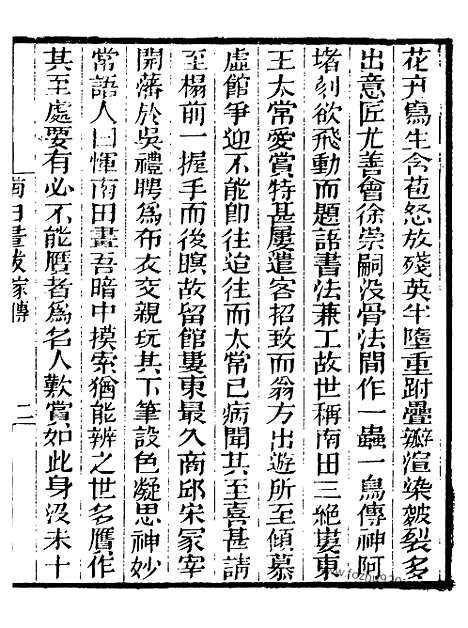 花卉寫生含苞怒放殘英半墮重跗疊瓣渲染皴裂多
出意匠尤善會徐崇嗣没骨法間作一蟲一鳥傳神阿
堵刻欲飛動而題語書法兼工故世稱南田三絕婁東
王太常愛賞特甚屢遣客招致而翁方出遊所至傾慕
虛館爭迎不能卽往迨往而太常已病聞其至喜甚請
至榻前一握手而後瞑故留館婁東最久商邱宋冢宰
開藩於吳禮聘爲布衣交親玩其下筆設色凝思神妙
常語人曰惲南田畫吾暗中摸索猶能辨之世多贋作
其至處要有必不能贋者爲名人歎賞如此身没未十
南田畫跋 家傳 二